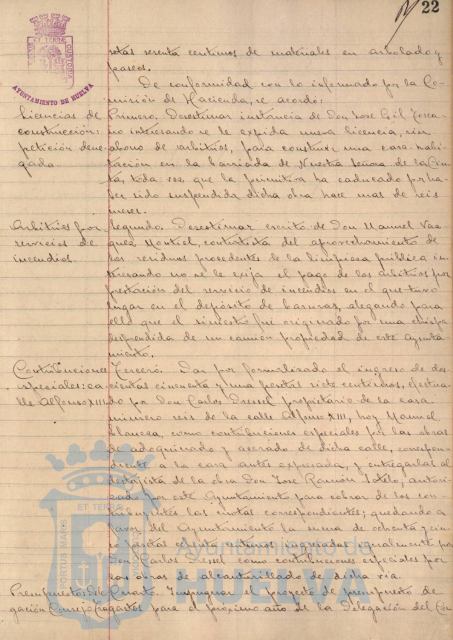 22
AYUNTAMIENTO DE HUELVA
setas sesenta centimos de materiales en arbolado y
paseos.
De conformidad con lo informado por la Co-
misión de Hacienda, se acordó:
Licencias de
construcción:
petición dene-
gada.
Primero. Desestimar instancia de Don José Gil Tosca-
no interesando se le expida nueva licencia, sin
abono de arbitrios, para construir una casa habi-
tación en la barriada de Nuestra Señora de la Cin-
ta, toda vez que la primitiva ha caducado por ha-
ber sido suspendida dicha obra hace mas de seis
meses.
Arbitrios por
servicios de
incendios.
Segundo. Desestimar escrito de Don Manuel Vaz-
quez Montiel, contratista del aprovechamiento de
los residuos procedentes de la limpieza pública in-
teresando no se le exija el pago de los arbitrios por
prestación del servicio de incendios en el que tuvo
lugar en el depósito de basuras, alegando para
ello que el siniestro fué originado por una chispa
desprendida de un camion propiedad de este Ayunta-
miento.
Contribuciones
especiales: ca-
lle Alfonso XIII.
Tercero. Dar por formalizado el ingreso de dos-
cientas cincuenta y una pesetas siete centimos, efectua-
do por Don Carlos propietario de la casa
número seis de la calle Alfonso XIII, hoy Manuel
como contribuciones especiales por las obras
de adoquinado y acerado de dicha calle, correspon-
diente a la casa antes expresada, y entregarlas al
destajista de la obra Don José Ramón autori-
zado por este Ayuntamiento para cobrar de los con-
tribuyentes las cuotas correspondientes; quedando a
favor del Ayuntamiento la suma de ochenta y cin-
co pesetas ochenta centimos ingresadas igualmente por
Don Carlos como contribuciones especiales por
las obras de alcantarillado de dicha via.
Presupuestos De-
gación Consejo
Cuarto. Impugnar el proyecto de presupuesto de
gastos para el próximo año de la Delegación del Con-
PORTUS MARIS ET TERRAE CUSTODIA
Ayuntamiento de
HUELVA